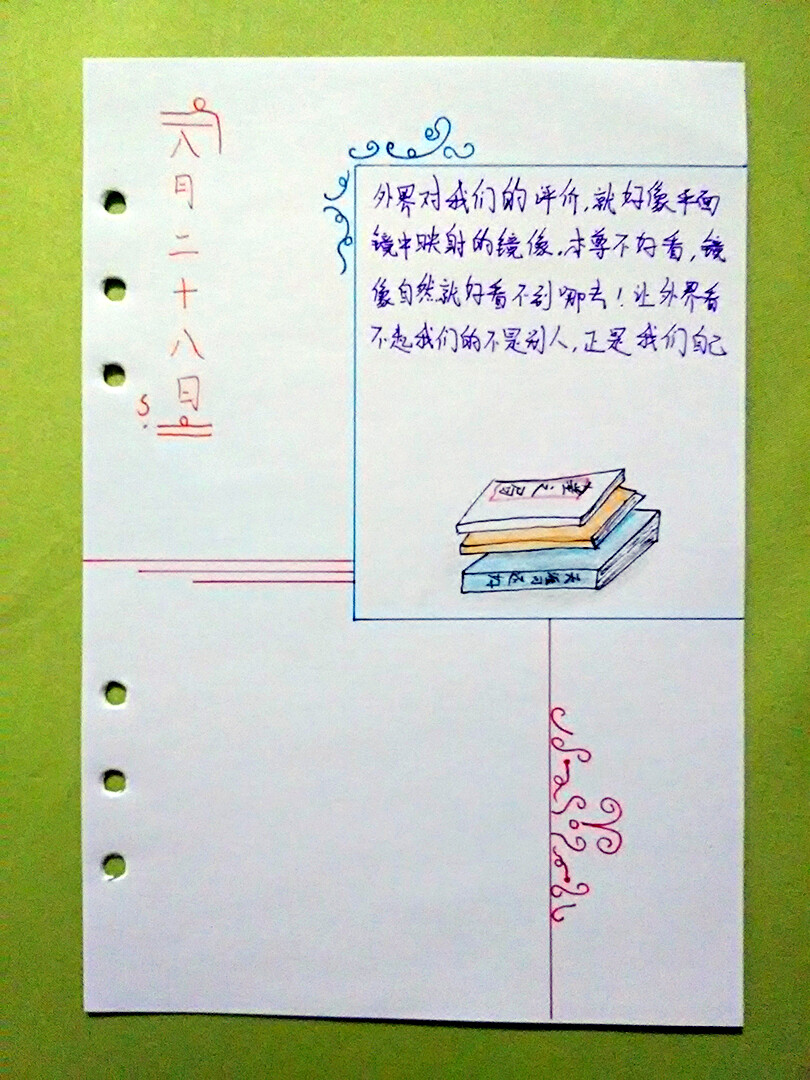 八月二十八日
S.
外界对我们的评价,就好像平面
镜中映射的镜像。本尊不好看,镜
像自然就好看不到哪去!让外界看
不起我们的不是别人,正是我们自己